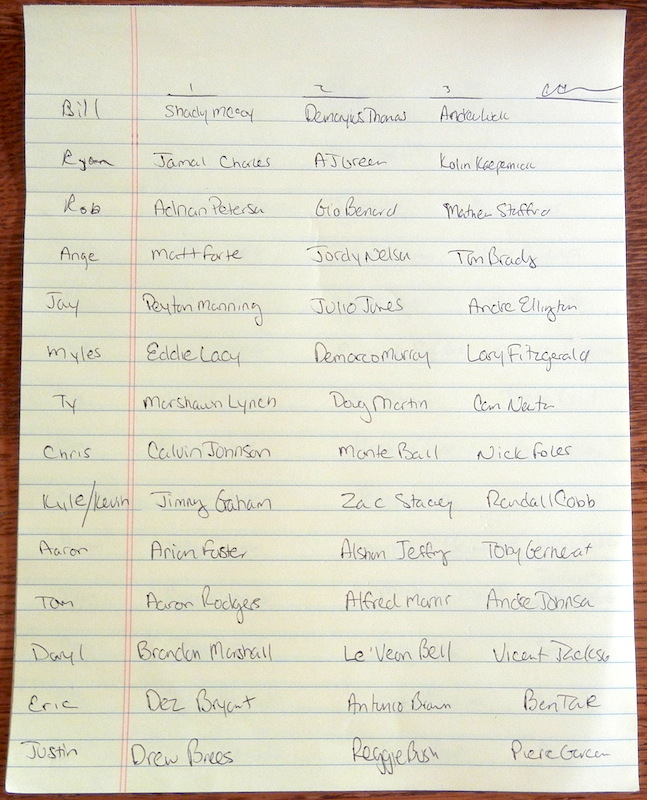 1 2 3
Bill Shady McCoy Demaryius Thomas Andrew Luck
Ryan Jamal Charles AJ Green Kolin Kaepernick
Rob Adrian Peterson Gio Benard Mathew Stafford
Ange Matt Forte Jordy Nelson Tom Brady
Jay Peyton Manning Julio Jones Andre Ellington
Myles Eddie Lacy Demarco Murray Lary Fitzgerald
Ty Marshawn Lynch Doug Martin Cam Newton
Chris Calvin Johnson Monte Ball Nick Foles
Kyle/Kevin Jimmy Graham Zac Stacey Randall Cobb
Aaron Arian Foster Alshon Jeffry Toby Gerheart
Tom Aaron Rodgers Alfred Morris Andre Johnson
Daryl Brandon Marshall Le'Veon Bell Vicent Jackson
Eric Dez Bryant Antonio Brown Ben Tate
Justin Drew Brees Reggie Bush Piere Garcon